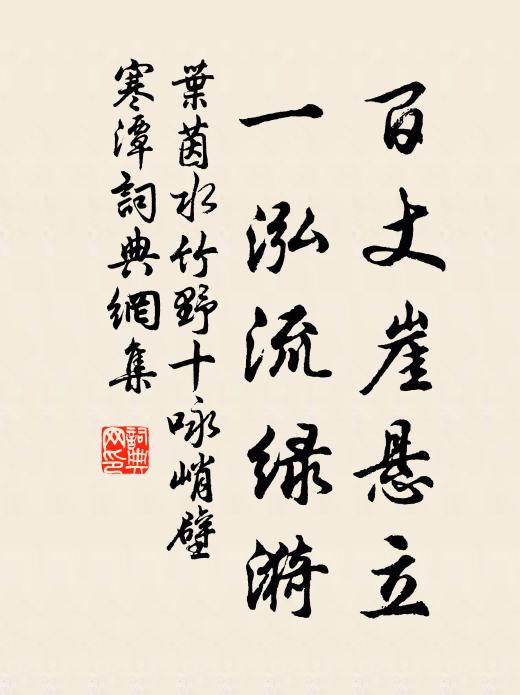 百丈崖悬立
一泓流绿漪
葉茵水竹野十咏峭壁
寒潭詞典網集
詞典
网印